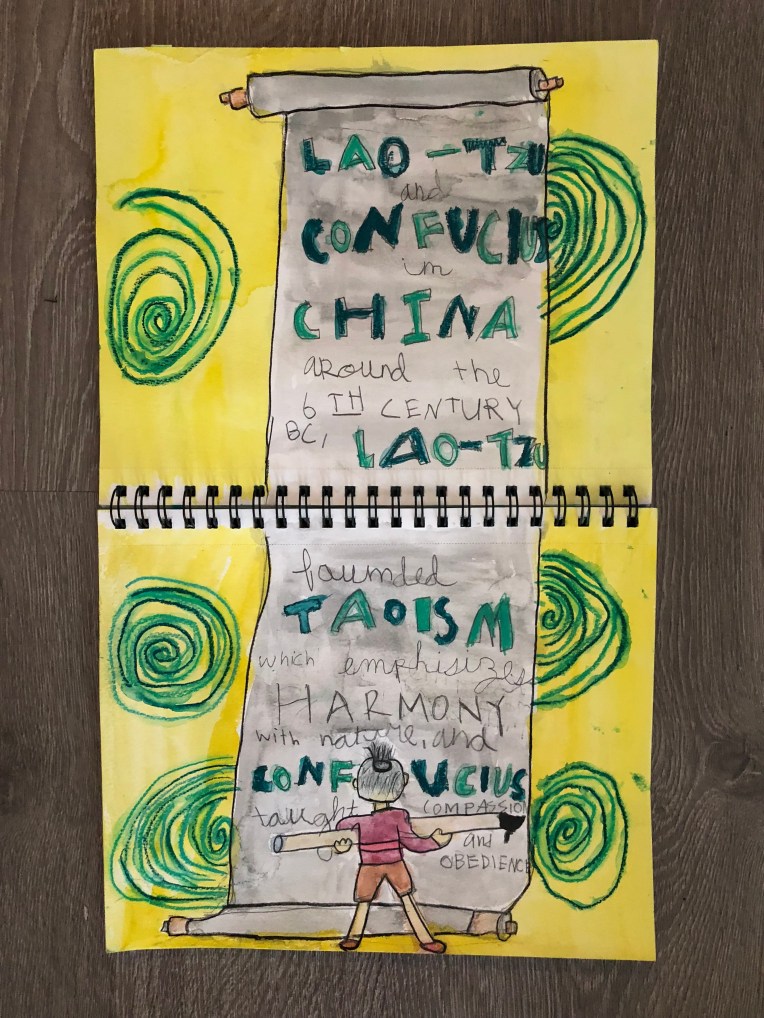 LAO-TZU
and
CONFUCIUS
in
CHINA
around the
6TH CENTURY
BC, LAO-TZU
founded
TAOISM
which emphisizes
HARMONY
with nature, and
CONFUCIUS
taught COMPASSION
and
OBEDIENCE